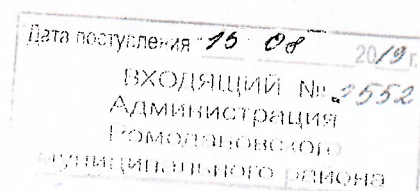 Дата поступления "15" 08 2019 г.
ВХОДЯЩИЙ № 2552
Администрация
Ромодановского
муниципального района